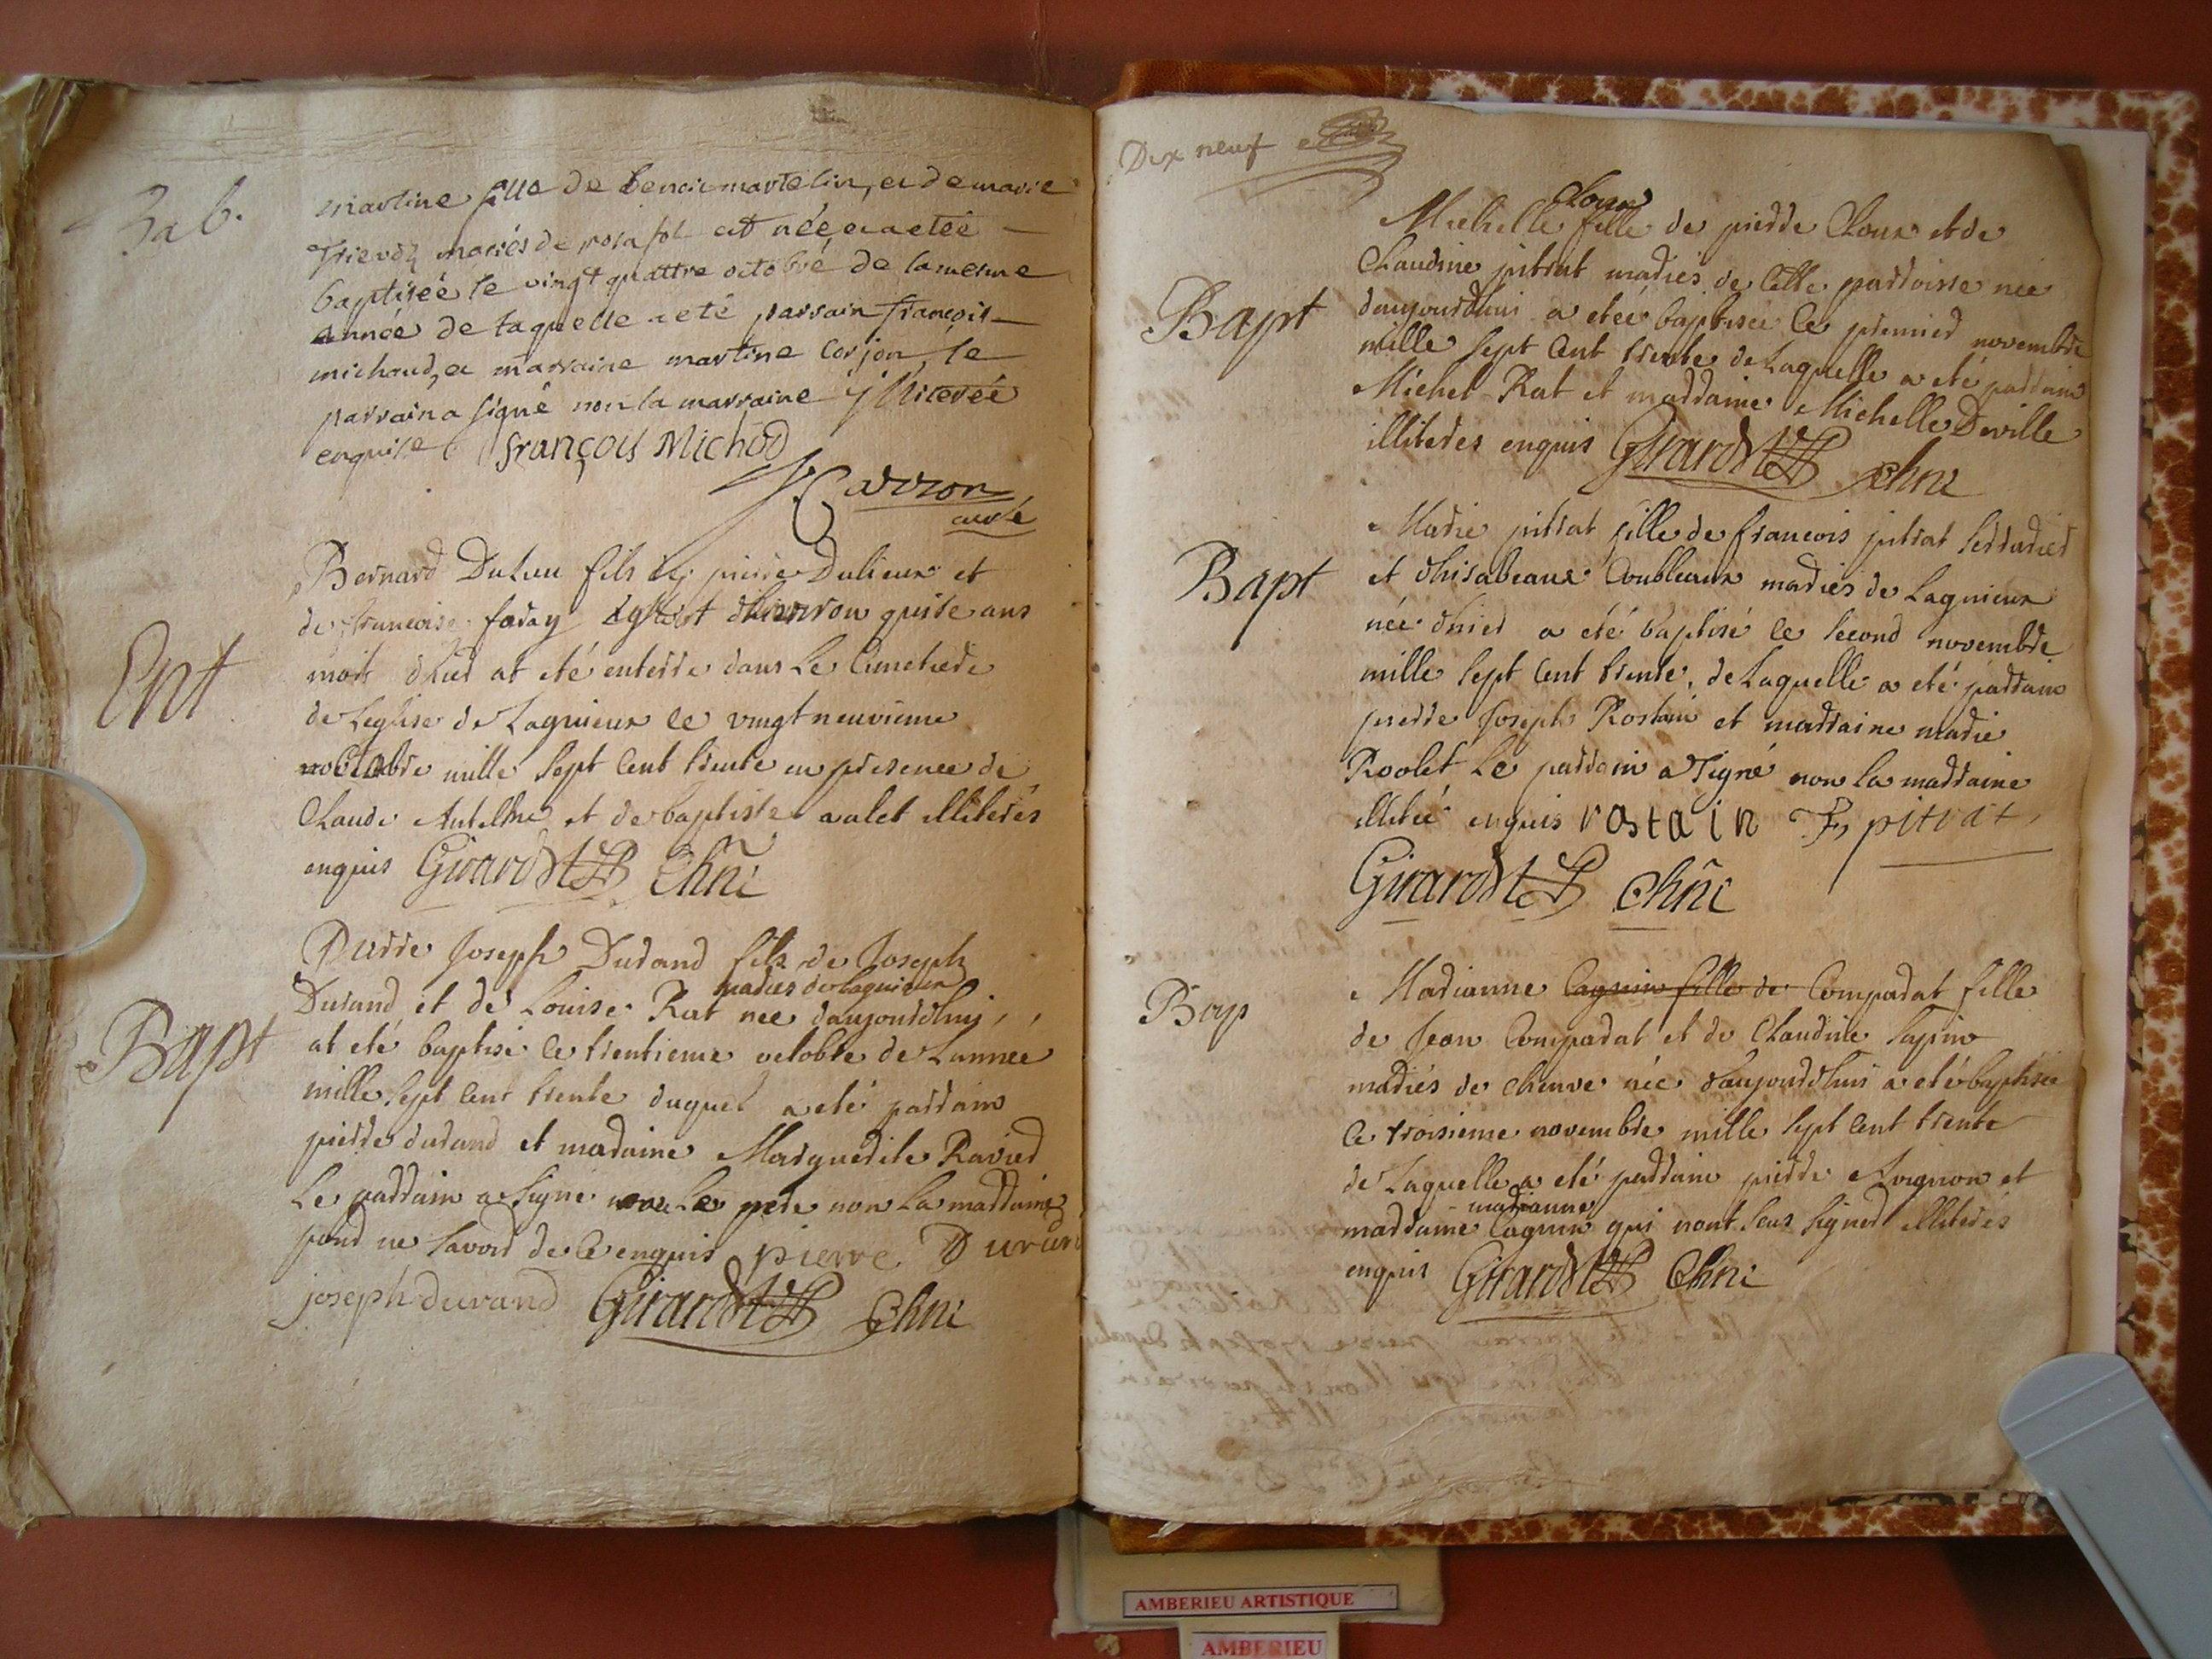 Bab.
martine fille de benoit martelin, et de marie
mariés de posafol est née et a eteé
baptiseé le vingt quattre octobre de la mesme
année de laquelle a eté parrain françois
michaud, et marraine martine Corjon, le
parrain a signé non la marraine illitereé
enquise françois Michod
Carron
curé
Ent
Bernard Duluu fils de pierre Dulieux et
de francoise faray agé d'environ quise ans
mort dhier at eté enterre dans le Cimetiere
de Leglise de Lagnieux le vingt neuvieme
octobre mille sept cent trente en presence de
Claude Antelme et de baptiste aalet illiterés
enquis Girard Chñe
Bapt
Pierre Joseph Durand fils de Joseph
mariés de lagnieux
Durand et de Louise Rat nee daujourdhuj
at eté baptisé le trentieme octobre de Lanneé
mille sept cent trente duquel a eté parrain
pierre durand et maraine Marguerite Ravier
Le parrain a signé le pere non la marraine
pour ne savoir de ce enquis pierre Durand
joseph durand Girard Chne
Dix neuf
Cloux
Michelle fille de pierre Cloux et de
Bapt
Claudine pitrat mariés de Cette parroisse née
daujourdhui a eteé baptisée le premier novembre
mille sept Cent trente de Laquelle a eté parrain
Michel Rat et marraine Michelle Deville
illiteres enquis Girard Chne
Bapt
Marie pitrat fille de francois pitrat serrurier
et dhisabeaux Coubleaux mariés de Lagnieux
née dhier a eté baptisé le second novembre
mille sept Cent trente, de Laquelle a eté parrain
pierre Joseph Rostain et marraine marie
Roolet Le parrain a signé non la marraine
illiteé enquis rostain F pitrat
Girard Chñe
Bap
Marianne Cagnin fille de Comparat fille
de Jean Comparat et de Claudine sapin
mariés de cheuve née daujourdhui a eté baptisée
le troisieme novembre mille sept Cent trente
de Laquelle a eté parrain pierre Avignon et
marianne
marraine Cagnin qui nont sceu signer illiterés
enquis Girard Chne
AMBERIEU ARTISTIQUE
AMBERIEU